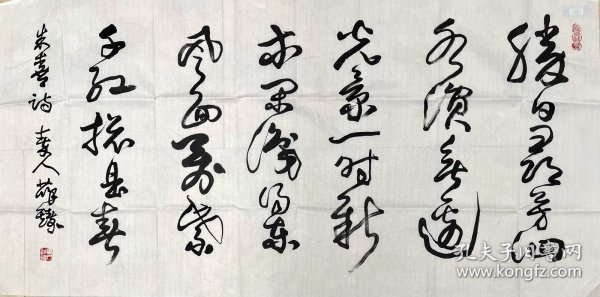 勝日尋芳泗
水濱無邊
光景一時新
等閒識得東
風面萬紫
千紅總是春
朱熹诗
孔夫子旧书网
www.kongfz.com